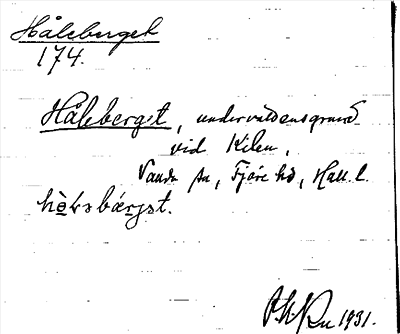 Håleberget
174.
Håleberget, undervattensgrund
vid Kilen,
Vanda sn, Fjäre hd, Hall. l.
1931.